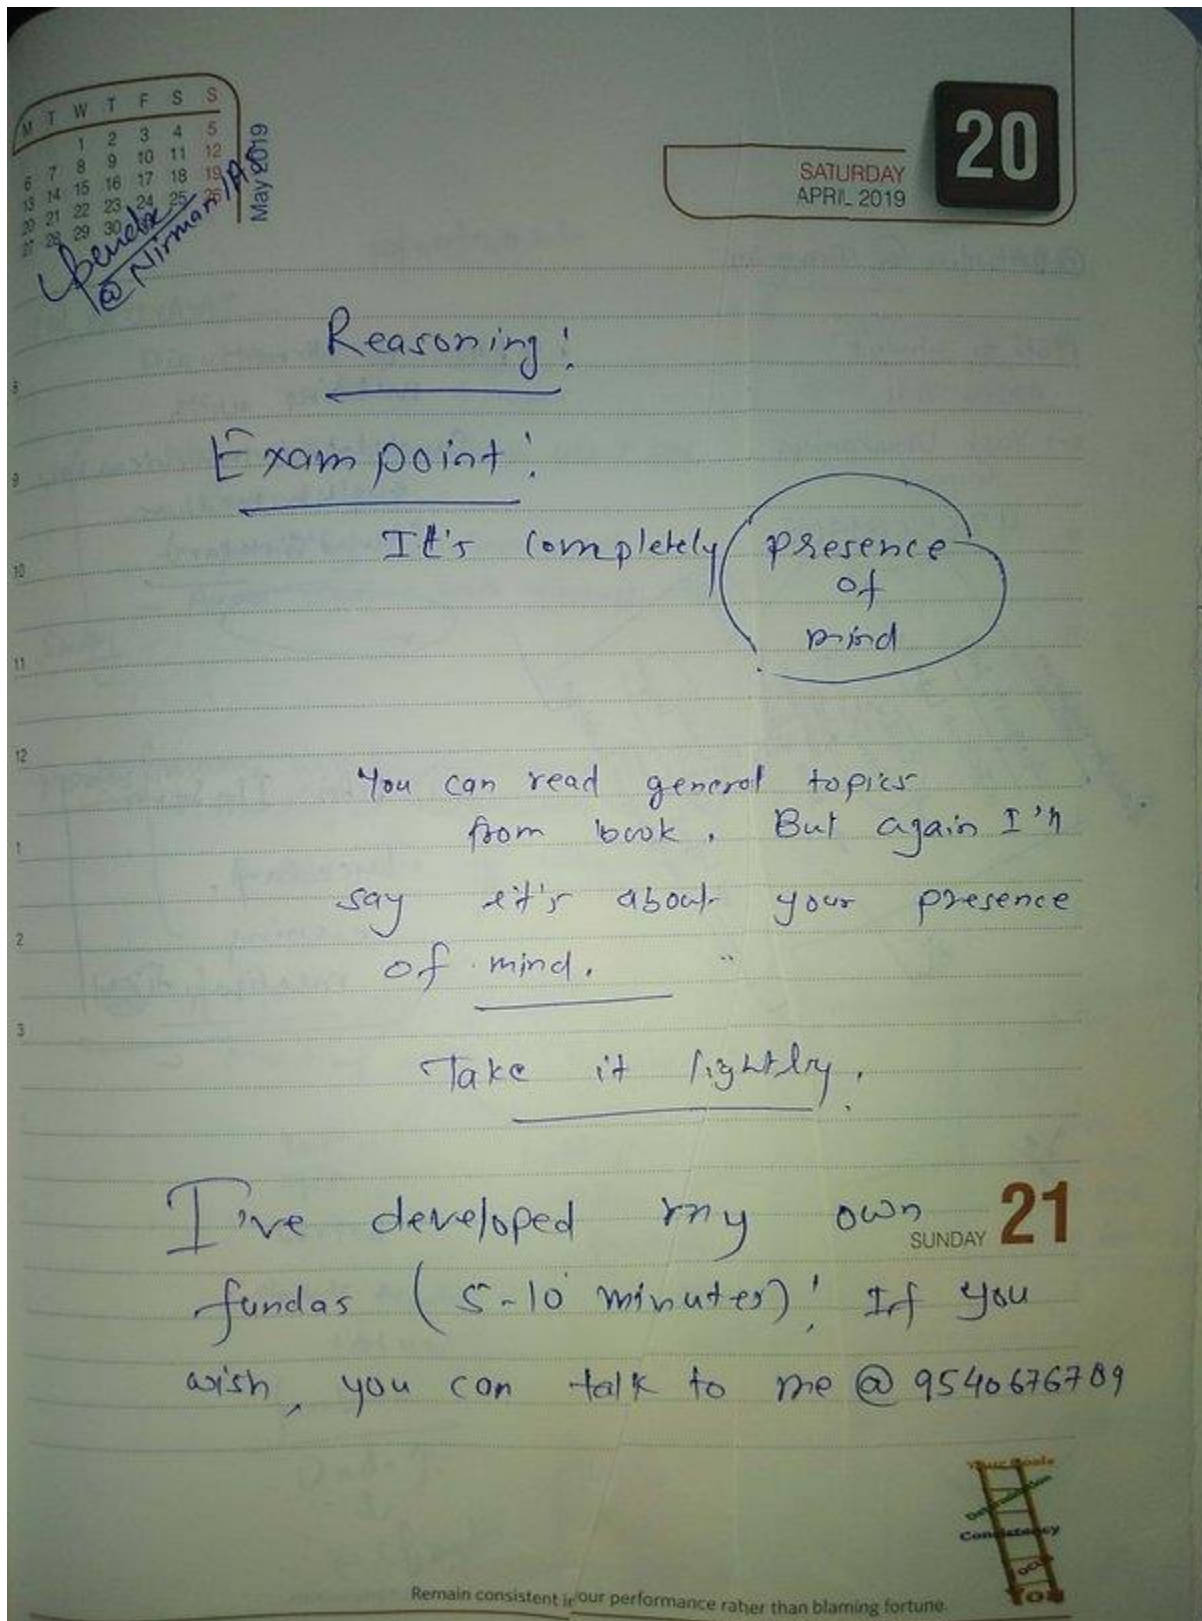 M T W T F S S
1 2 3 4 5
6 7 8 9 10 11 12
13 14 15 16 17 18 19
20 21 22 23 24 25 26
27 28 29 30
May 2019
@Nirman IAS
20
SATURDAY
APRIL 2019
Reasoning:
Exam point:
It's completely presence
of
mind
You can read general topics
from book. But again I'll
say it's about your presence
of mind.
Take it lightly.
I've developed my own
SUNDAY 21
fundas (5-10 minutes)! If you
wish, you can talk to me @ 9540676789
8
9
10
11
12
1
2
3
Your Goals
Determination
Consistency
YOU
Remain consistent in our performance rather than blaming fortune.